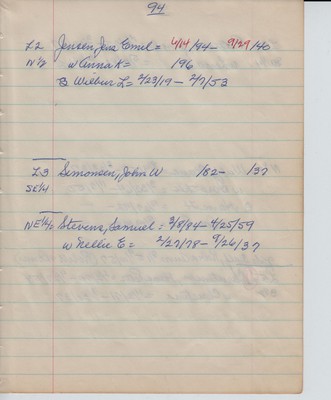 94
L2 Jensen, Jens Emil = 4/14/94 - 9/29/40
N 1/2 w Anna K = /96 -
B Wilbur L = 2/23/19 - 2/7/53
L3 Simonsen, John W /82 - /37
SE 1/4
NE 1/4 Stevens, Samuel = 3/8/84 - 4/25/59
w Nellie E = 2/27/78 - 9/26/37